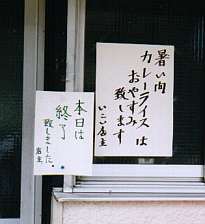 暑い内
カレーライスは
おやすみ
致します
いこい店主
本日は
終了
致しました。
店主